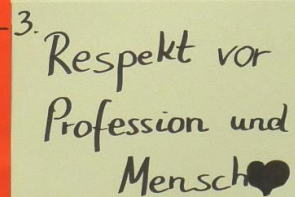 3.
Respekt vor
Profession und
Mensch